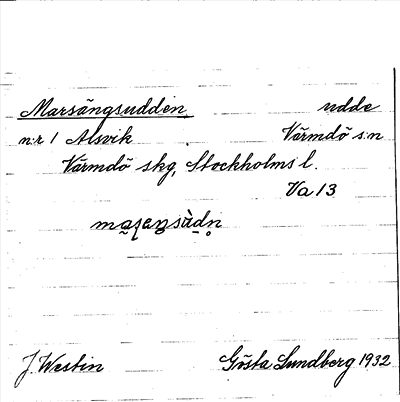 Marsängsudden, udde
n:r 1 Alsvik Värmdö s:n
Värmdö skg, Stockholms l.
Va 13
J. Westin Gösta Lundberg 1932